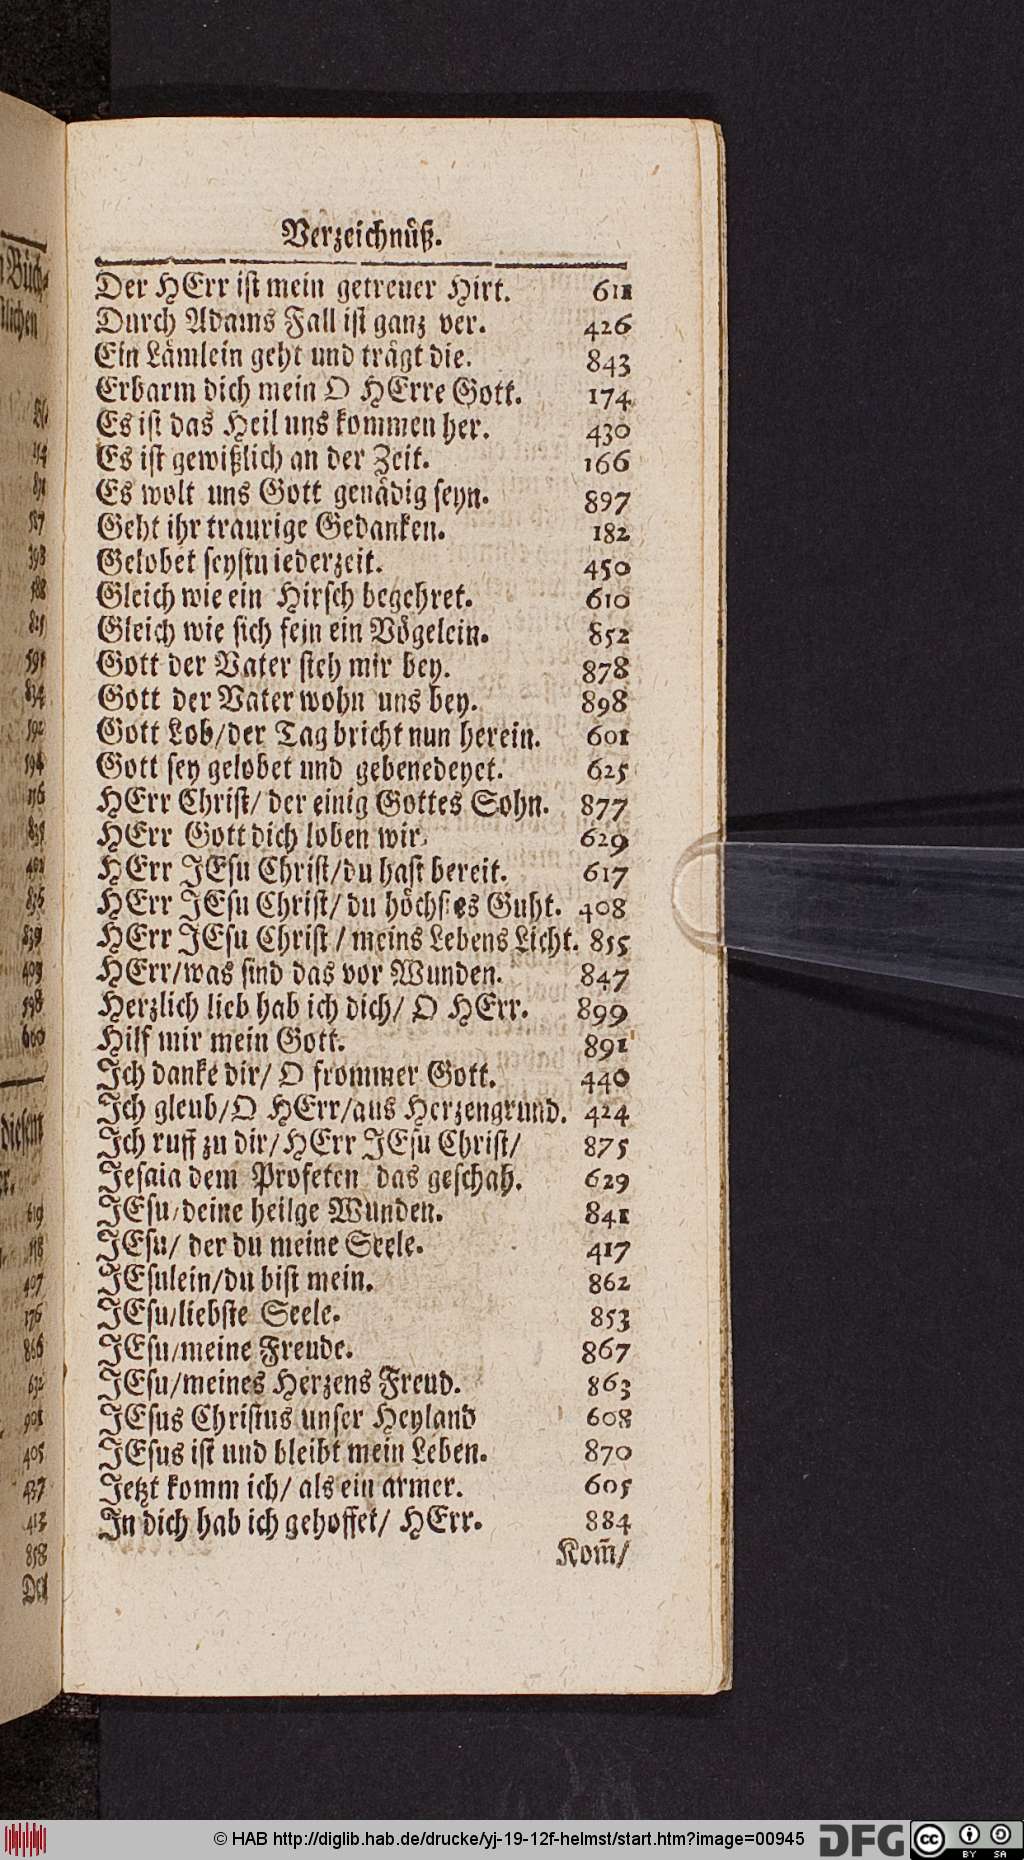 Verzeichnüß.
Der HErr ist mein getreuer Hirt. 611
Durch Adams Fall ist ganz ver. 426
Ein Lämlein geht und trägt die. 843
Erbarm dich mein O HErre Gott. 174
Es ist das Heil uns kommen her. 430
Es ist gewißlich an der Zeit. 166
Es wolt uns Gott genädig seyn. 897
Geht ihr traurige Gedanken. 182
Gelobet seystu iederzeit. 450
Gleich wie ein Hirsch begehret. 610
Gleich wie sich fein ein Vögelein. 852
Gott der Vater steh mir bey. 878
Gott der Vater wohn uns bey. 898
Gott Lob/der Tag bricht nun herein. 601
Gott sey gelobet und gebenedeyet. 625
HErr Christ/ der einig Gottes Sohn. 877
HErr Gott dich loben wir. 629
HErr JEsu Christ/du hast bereit. 617
HErr JEsu Christ/ du höchstes Guht. 408
HErr JEsu Christ / meins Lebens Licht. 855
HErr/was sind das vor Wunden. 847
Herzlich lieb hab ich dich/ O HErr. 899
Hilf mir mein Gott. 891
Ich danke dir/ O frommer Gott. 440
Ich gleub/O HErr/aus Herzengrund. 424
Ich ruff zu dir/HErr JEsu Christ/ 875
Jesaia dem Profeten das geschah. 629
JEsu/deine heilge Wunden. 841
JEsu/ der du meine Seele. 417
JEsulein/du bist mein. 862
JEsu/liebste Seele. 853
JEsu/meine Freude. 867
JEsu/meines Herzens Freud. 863
JEsus Christus unser Heyland 608
JEsus ist und bleibt mein Leben. 870
Jetzt komm ich/ als ein armer. 605
In dich hab ich gehoffet/ HErr. 884
Kom̃/
© HAB http://diglib.hab.de/drucke/yj-19-12f-helmst/start.htm?image=00945
DFG
cc BY SA